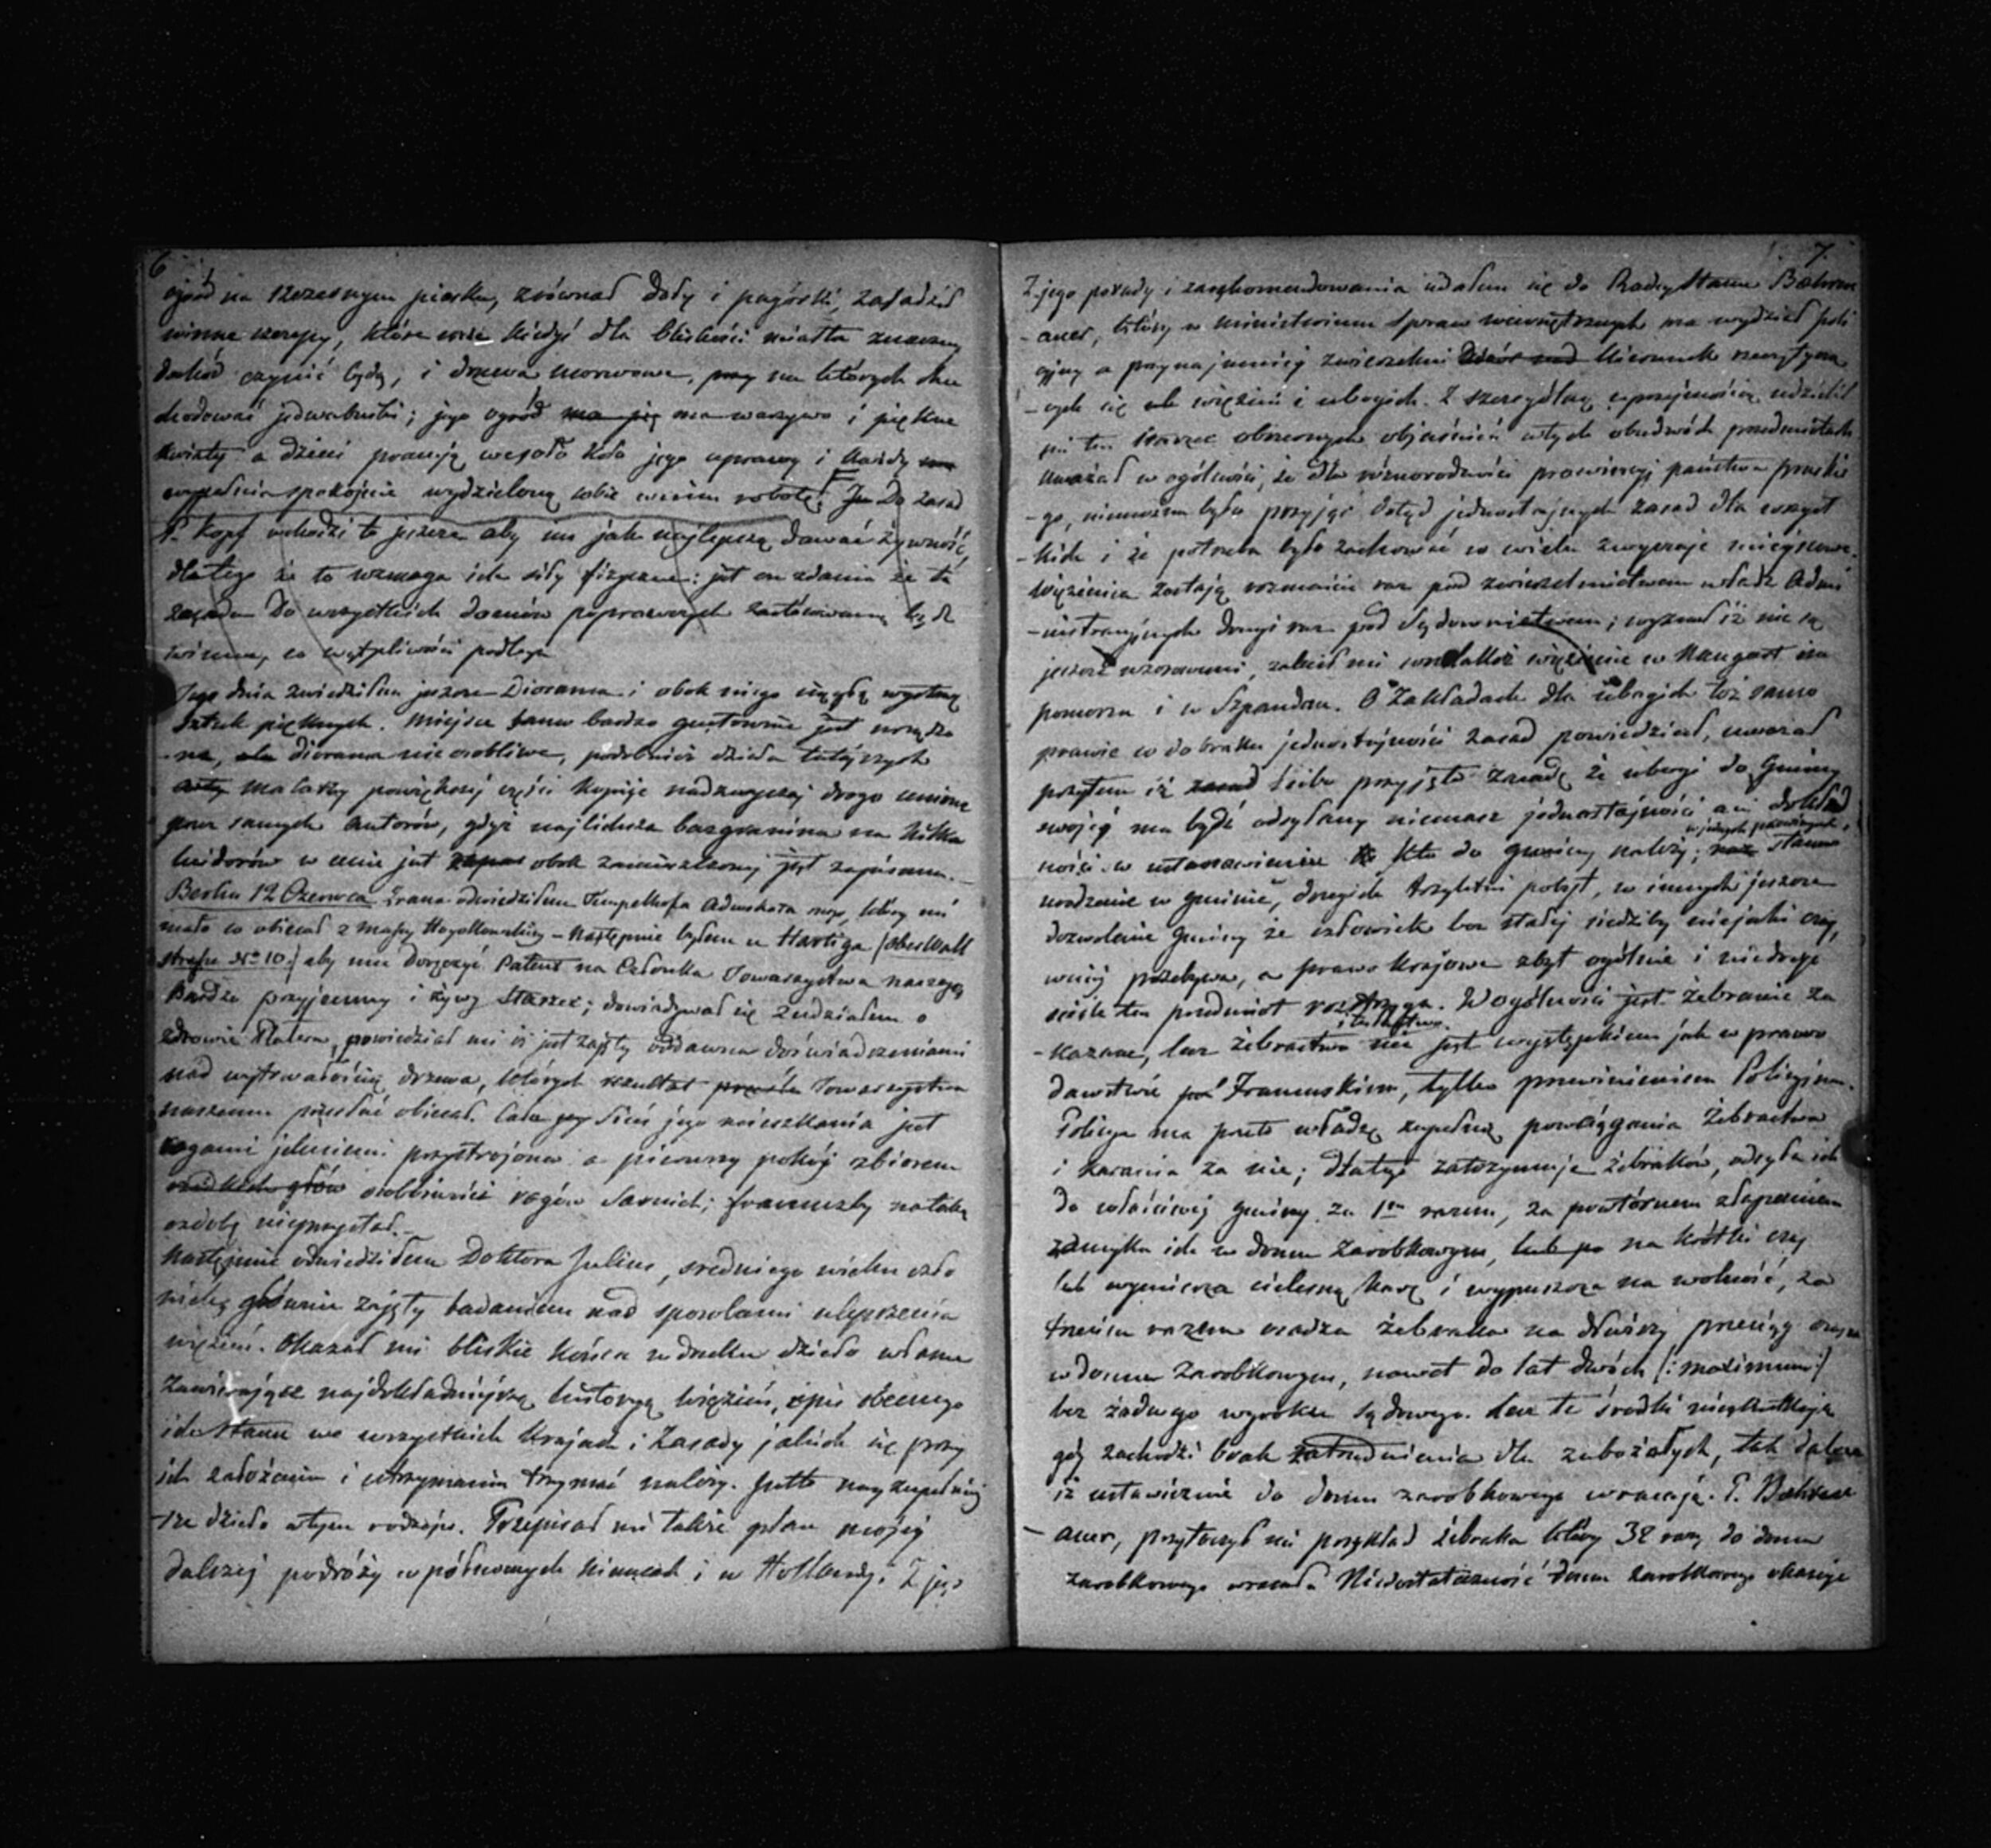 6
ogród na szczerym piasku, zrównał doły i pagórki, zasadził
winne szczepy, które może kiedyś dla bliskości miasta znaczny
dochód czynić będą, i drzewa morwowe, na których chce
hodować jedwabniki; jego ogród ma się ma warzywo i piękne
kwiaty a dzieci pracują wesoło koło jego uprawy i każdy
wypełnia spokojnie wydzieloną sobie robotę. Do zasad
P. Kopf wchodzi to jeszcze aby im jak najlepszą dawać żywność,
dlatego że to wzmaga ich siły fizyczne: jest on zdania że ta
zasada do wszystkich domów poprawczych zastosowaną być
winna, co wątpliwości podlega
Tego dnia zwiedziłem jeszcze Diorama i obok niego ciągłą wystawę
sztuk pięknych. Miejsce samo bardzo gustownie jest urządzo
-ne, ale diorama nie osobliwe, podobnież dzieła tutejszych
malarzy powiększej części kopije nadzwyczaj drogo cenione
przez samych autorów, gdyż najlichsza bazgranina na kilka
luidorów w cenie jest obok zawieszonej jest zapisana.
Berlin 12 Czerwca Zrana odwiedziłem Tempelhofa Adwokata mego, który mi
mało co obiecał z massy - Następnie byłem u Hartiga (Oberwall
strasse No 10.) aby mu doręczyć Patent na Członka Towarzystwa naszego,
Bardzo przyjemny i żywy starzec; dowiadywał się z udziałem o
zdrowie Platera, powiedział mi iż jest zajęty oddawna doświadczeniami
nad wytrwałością drzewa, których rezultat Towarzystwu
naszemu przesłać obiecał. Cała sień jego mieszkania jest
rogami jelenimi przystrojona a pierwszy pokój zbiorem
rzadkich głów osobliwości rogów sarnich; francuzby na taką
ozdobę nieprzystał.
Następnie odwiedziłem Doktora Julius, sredniego wieku czło
wieka głównie zajęty badaniem nad sposobami ulepszenia
więzień. Okazał mi bliskie końca w druku dzieło własne
zawierające najdokładniejszą historyą więzień, opis obecnego
ich stanu we wszystkich krajach i Zasady jakich się przy
ich założeniu i utrzymaniu trzymać należy. Jestto najzupełniej
-sze dzieło w tym rodzaju. Przepisał mi także plan mojej
dalszej podróży w północnych Niemczech i w Hollandyi. Z jego
7.
Z jego porady i zarekomendowania udałem się do Radcy Stanu
-auer, który w ministerium spraw wewnętrznych ma wydział poli
cyjny a przynajmniej zwierzchni dozór nad kierunek rzeczy tyczą
-cych się więzień i ubogich. Z szczególną uprzejmością udzielił
mi ten starzec obszernych objaśnień w tych obudwóch przedmiotach
Uważał w ogólności, że dla różnorodności prowincyj państwa pruskie
-go, niemożna było przyjąć dotąd jednostajnych zasad dla wszyst
-kich i że potrzeba było zachować w wielu zwyczaje miejscowe.
Więzienia zostają rozmaicie raz pod zwierzchnictwem władz Admi
-nistracyjnych drugi raz pod Sądownictwem; wyznał iż nie są
jeszcze wzorowemi, zalecił mi wszelakoż więzienie w Naugart na
pomorzu i w Szpandau. O Zakładach dla ubogich toż samo
prawie co do braku jednostajności zasad powiedział, uważał
przytem iż zasad liubo przyjęto zasadę że ubogi do gminy
swojej ma być odsyłany niemasz jednostajności ani dokład
ności w ustanowieniu kto do gminy należy; w jednych prowincyach stanowi
urodzenie w gminie, drugich trzyletni pobyt, w innych jeszcze
dozwolenie gminy że człowiek bez stałej siedziby niejaki czas,
w niej przebywa, a prawo krajowe zbyt ogólnie i niedosyć
ściśle ten przedmiot rozstrzyga. W ogólności jest żebranie za
-kazane, lecz żebractwo nie jest występkiem jak w prawo
dawstwie Francuskiem, tylko przewinieniem Policyjnem.
Policya ma przeto władzę zupełną powściągania Żebractwa
i karania za nie; dlatego zatrzymuje żebraków, odsyła ich
do właściwej gminy za 1ym razem, za powtórnem złapaniem
zamyka ich w domu zarobkowym, lub po na krótki czas
lub wymierza cielesną karę i wypuszcza na wolność, za
trzecim razem osadza żebraka na dłuższy przeciąg czasu
w domu zarobkowym, nawet do lat dwóch (: maximum :)
bez żadnego wyroku sądowego. Lecz te środki nieskutkują
gdy zachodzi brak zatrudnienia dla zubożałych, tak dalece
iż ustawicznie do domu zarobkowego wracają. P.
-auer, przytoczył mi przykład żebraka który 32 razy do domu
zarobkowego wracał. Niedostateczność domu zarobkowego okazuje